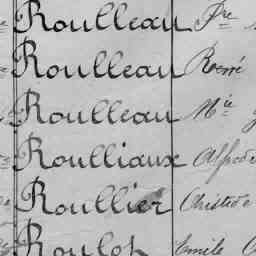 Roulleau Pre
Roulleau René
Roulleau Mie
Roulliaux Alfred
Roullier Aristide
Roulot Emile